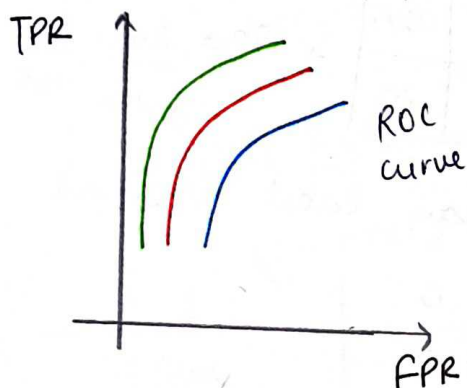 TPR
ROC
curve
FPR